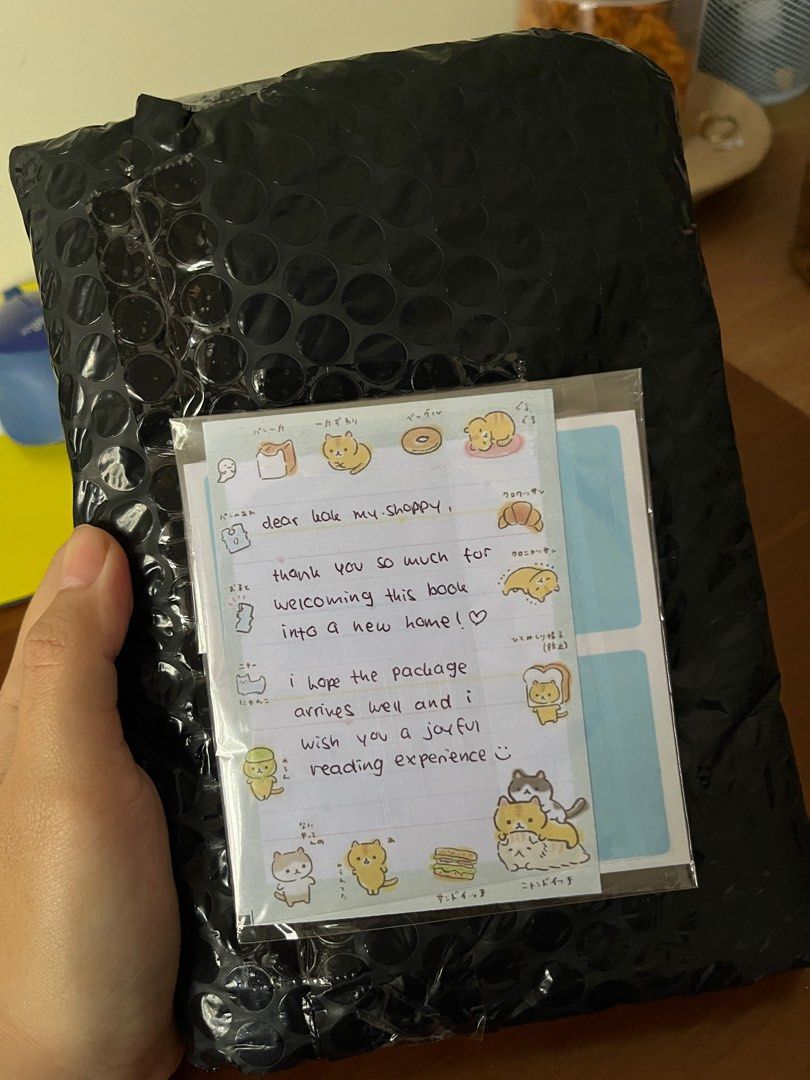 パン一斤
ベーグル
ぐる
ぐる
クロワッサン
dear kak my.shoppy,
thank you so much for
welcoming this book
into a new home! ♡
i hope the package
arrives well and i
wish you a joyful
reading experience
なに
やってんの
サンドイッチ
ニャンドイッチ